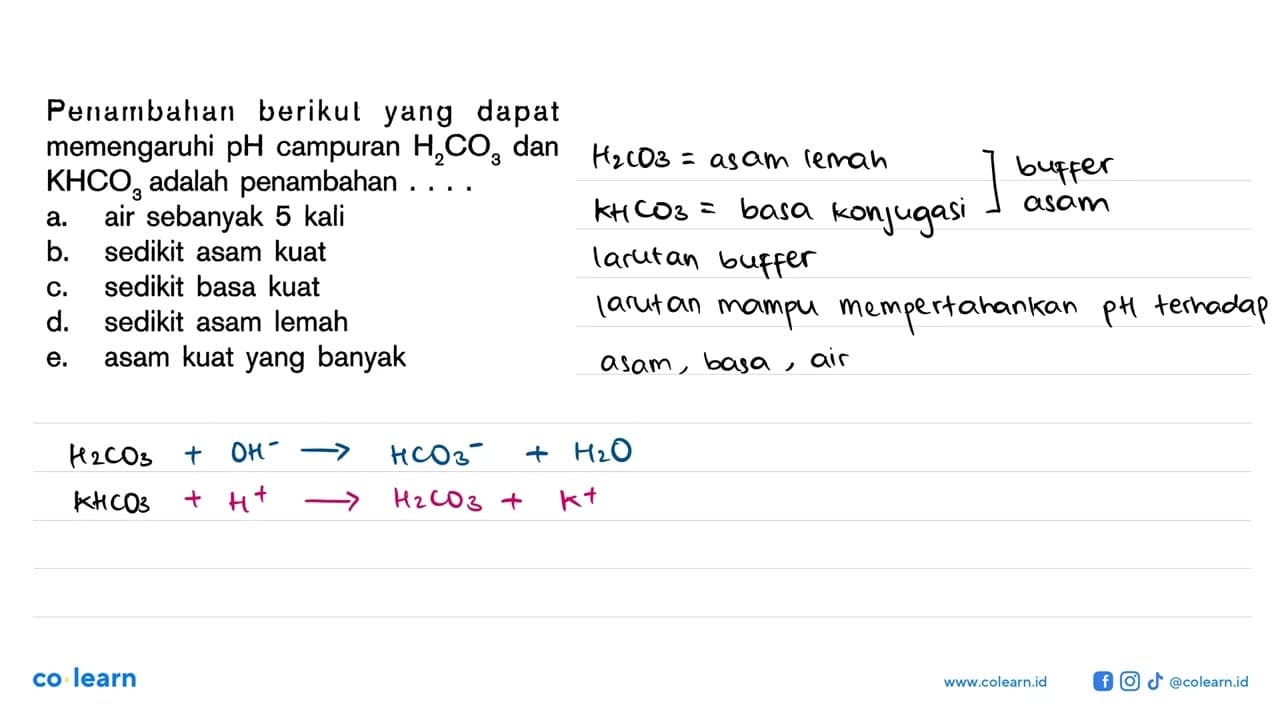 Penambahan berikut yang dapat
memengaruhi pH campuran H₂CO₃ dan
KHCO₃ adalah penambahan . . . .
a. air sebanyak 5 kali
b. sedikit asam kuat
c. sedikit basa kuat
d. sedikit asam lemah
e. asam kuat yang banyak
H₂CO₃ = asam lemah
KHCO₃ = basa konjugasi
] buffer
asam
larutan buffer
larutan mampu mempertahankan pH terhadap
asam, basa, air
H₂CO₃ + OH⁻ → HCO₃⁻ + H₂O
KHCO₃ + H⁺ → H₂CO₃ + K⁺
co learn
www.colearn.id
@colearn.id